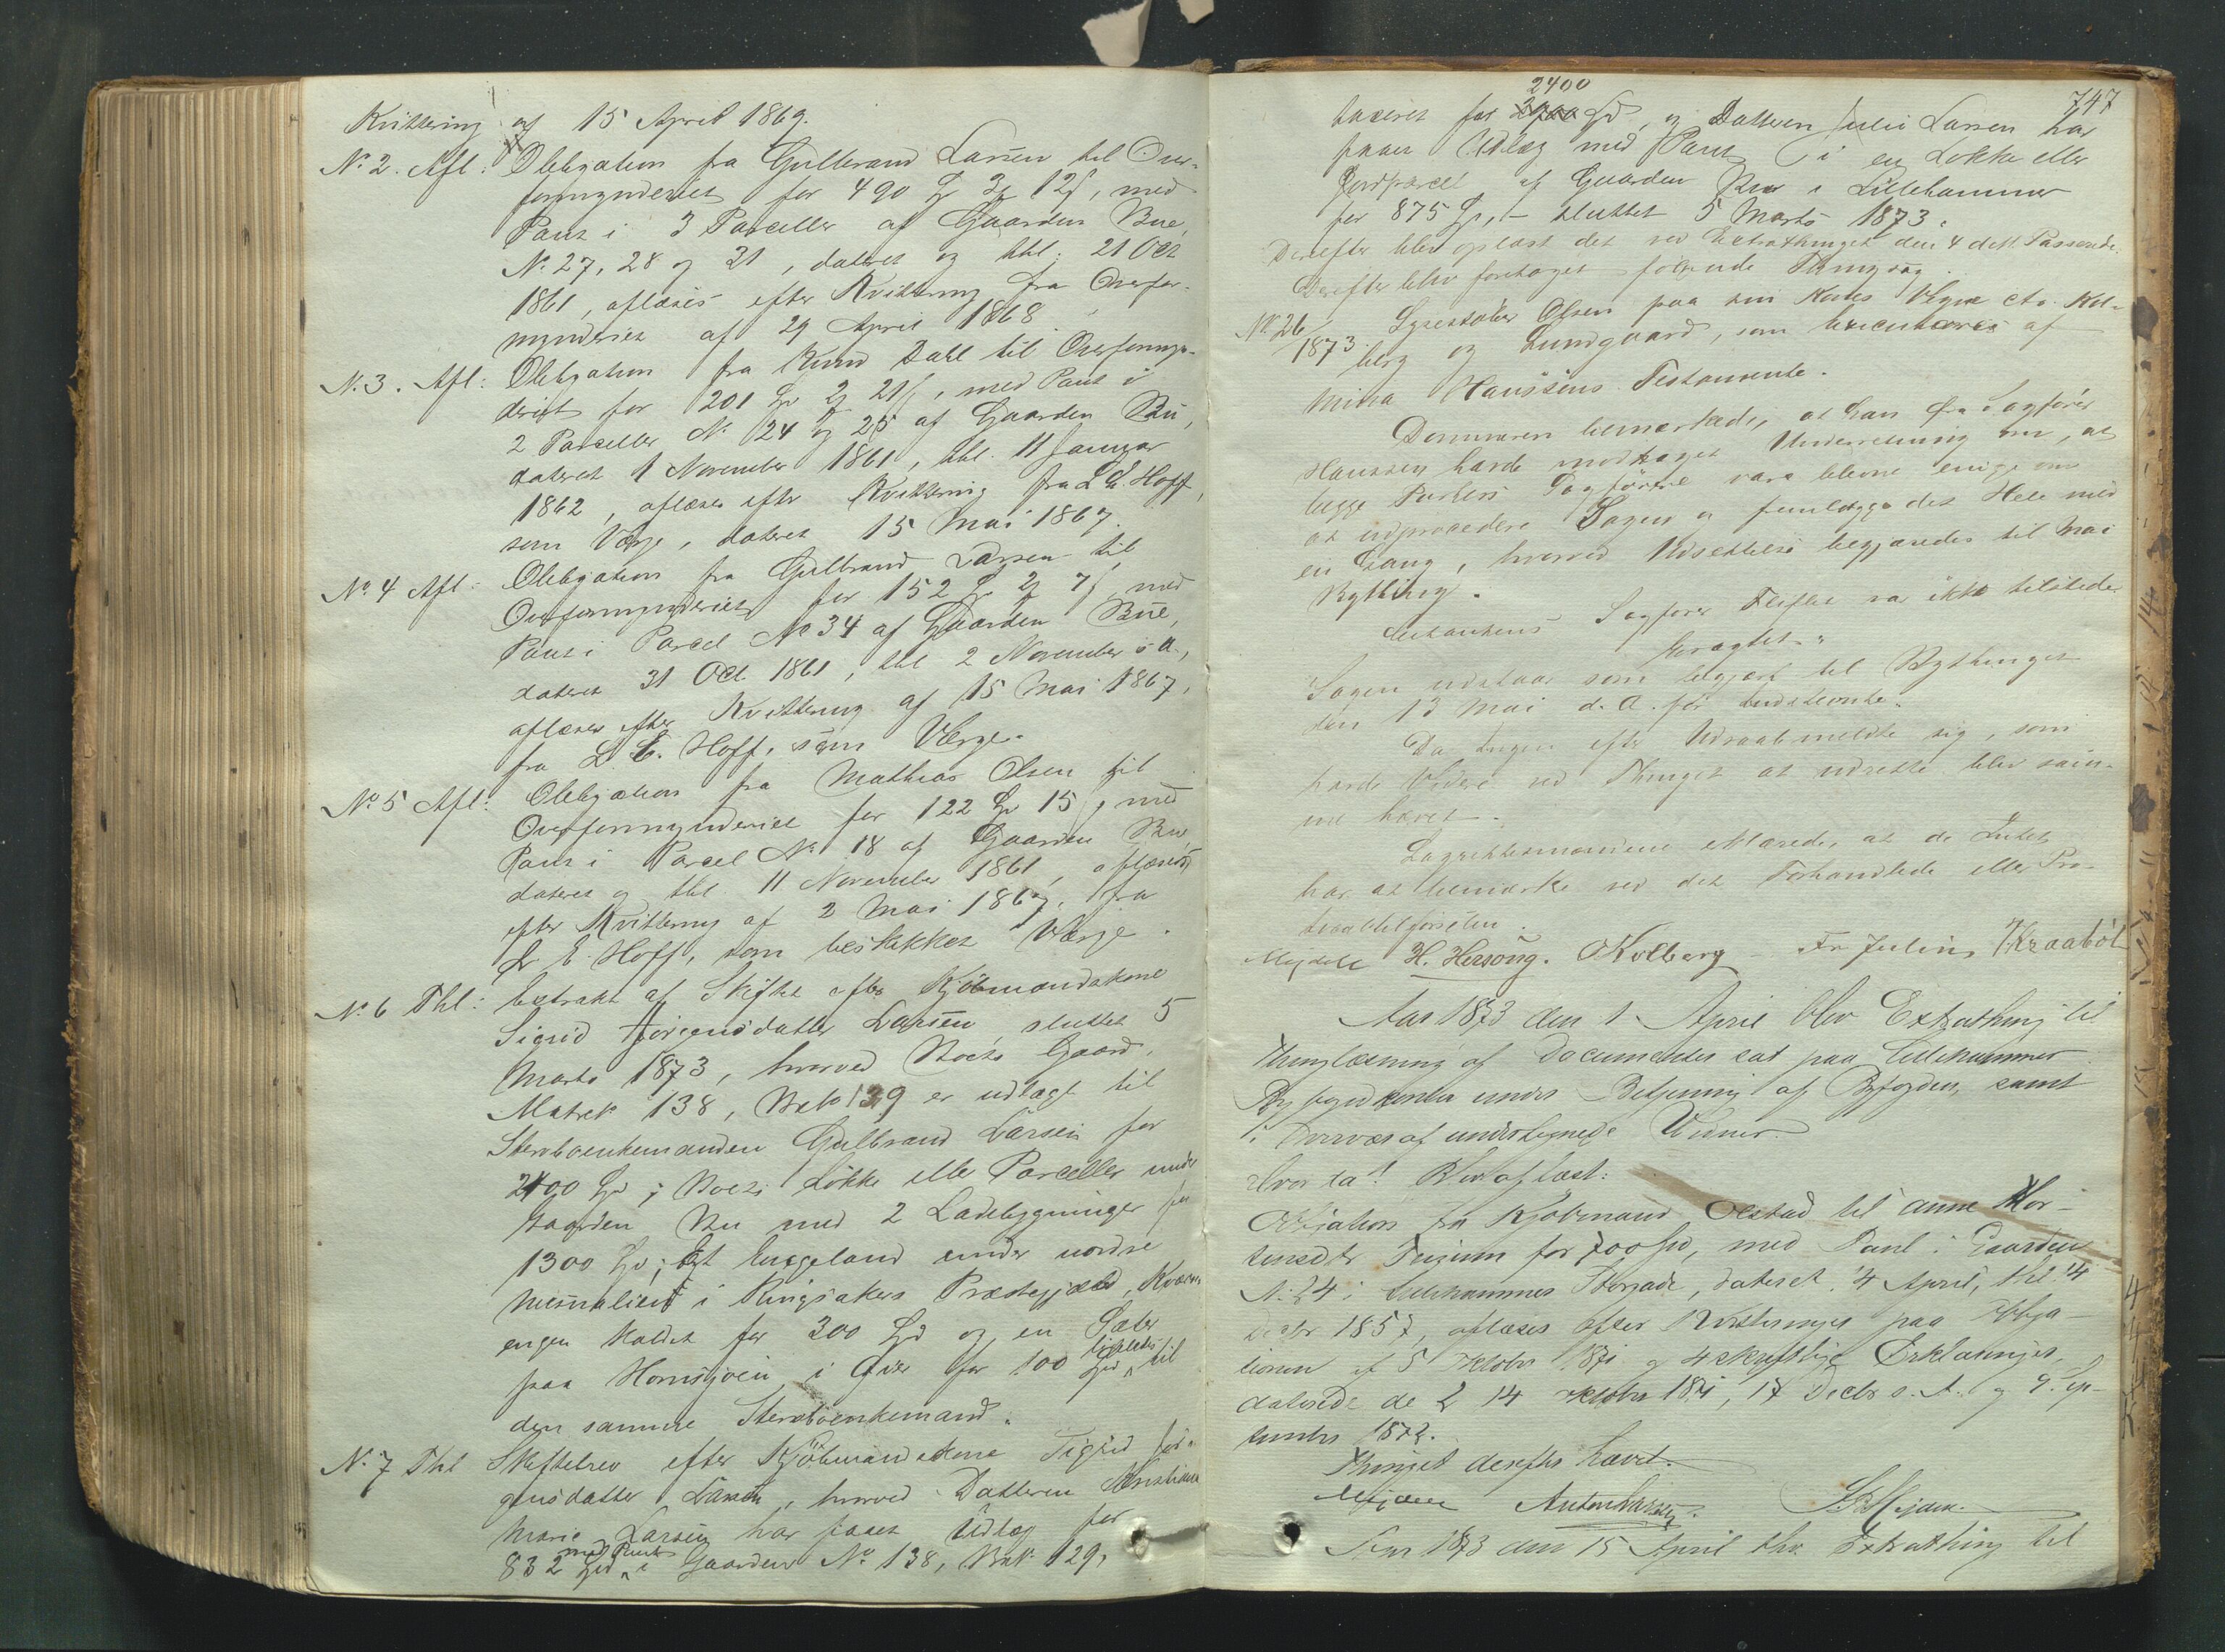 Kvittering af 15 April 1869.
No 2. Afl: Obligation fra Gulbrand Larsen til Over-
formynderiet for 490 Spd 3 12 s, med
Pant i 3 Parceller af Gaarden Bue,
No 27, 28 og 31, dateret og thl: 21 Oct
1861, aflæses efter Kvittering fra Overfor-
mynderiet af 29 April 1868.
No 3. Afl: Obligation fra Knud Dahl til Overformyn-
deriet for 201 Spd 2 21 s, med Pant i
2 Parceller No 24 og 25 af Gaarden Bu,
dateret 1 November 1861, thl. 11 Januar
1862, aflæses efter Kvittering fra L. E. Hoff,
som Værge, dateret 15 Mai 1867.
No 4 Afl: Obligation fra Gulbrand Larsen til
Overformynderiet for 152 Spd 2 7 s, med
Pant i Parcel No 34 af Gaarden Bue,
dateret 31 Oct 1861, thl 2 November s. A.,
aflæses efter Kvittering af 15 Mai 1867,
fra L. E. Hoff, som Værge.
No 5 Afl: Obligation fra Mathias Olsen til
Overformynderiet for 122 Spd 15 s, med
Pant i Parcel No 18 af Gaarden Bue,
dateret og thl 11 November 1861, aflæses
efter Kvittering af 2 Mai 1867, fra
L. E. Hoff, som beskikket Værge.
No 6 Thl: Extrakt af Skiftet efter Kjöbmandskone
Sigrid Jörgensdatter Larsen, sluttet 5
Marts 1873, hvorved Boets Gaard,
Matrik 138, Brk 129 er udlagt til
Sterboenkemanden Gulbrand Larsen for
2400 Spd; Boets Lökke eller Parceller under
Gaarden Bu med 2 Ladebygninger for
1300 Spd; Et Engeland under nordre
i Ringsakers Præstegjæld, Kværn
engen kaldet for 300 Spd og en Sæter
paa Hornsjöen i Öier for 100 Spd ligeledes til
den samme Sterboenkemand.
No 7 Thl Skiftebrev efter Kjöbmandskone Sigrid Jör-
gensdatter Larsen, hvorved Datteren Kristiane
Marie Larsen har faaet Udlæg for
832 Spd med Pant i Gaarden No 138, Brk: 129,
747
taxeret for 2400 Spd, og Datteren Julie Larsen har
faaet Udlæg med Pant i en Lökke eller
Jordparcel af Gaarden Bue i Lillehammer
for 875 Spd, – sluttet 5 Marts 1873.
Derefter blev oplæst det ved Extrathinget den 4 dets Passerede.
Derefter blev foretaget følgende Thingsag.
No 26/1873. Olsen paa sin Kones Vegne ctr. Kol-
berg og Lundgaard, som Executores af
Mina Hanssens Testamente.
Dommeren bemærkede, at han fra Sagförer
Hanssen havde modtaget Underretning om, at
begge Parters Sagförere vare blevne enige om
at udprocedere Sagen og fremlægge det Hele med
en Gang, hvorved Udsættelse begjæredes til Mai
Bything.
Citantens Sagförer var ikke tilstede.
Eragtet.
Sagen udstaar som begjært til Bythinget
den 13 Mai d. A. för indstevnte.
Da Ingen efter Udraab meldte sig, som
havde Videre ved Thinget at udrette blev sam-
me hævet.
Lagrettesmændene erklærede, at de Intet
har at bemærke ved det Forhandlede eller Pro-
tocoltilförselen.
H. Hersoug. O Kolberg Fr Julius Kraaböl
Aar 1873 den 1 April blev Extrathing til
Thinglæsning af Documenter sat paa Lillehammer
Byfogedkontor under Betjening af Byfogden, samt
i Overvær af undertegnede Vidner.
Hvor da! Blev aflæst:
Obligation fra Kjöbmand Olstad til Anne Mor-
tensdtr for 700 Spd, med Pant i Gaarden
No 24 i Lillehammers Storgade, dateret 4 April, thl 14
Decbr 1857, aflæses efter Kvitteringer paa Obliga-
tionen af 5 Oktober 1871 og 4 skriftlige Erklæringer,
daterede de 2 14 Oktober 1871, 17 Decbr s. A. og 9. Sep-
tember 1872.
Thinget derefter hævet.
Anton Larsen.
Aar 1873 den 15 April blev Extrathing til